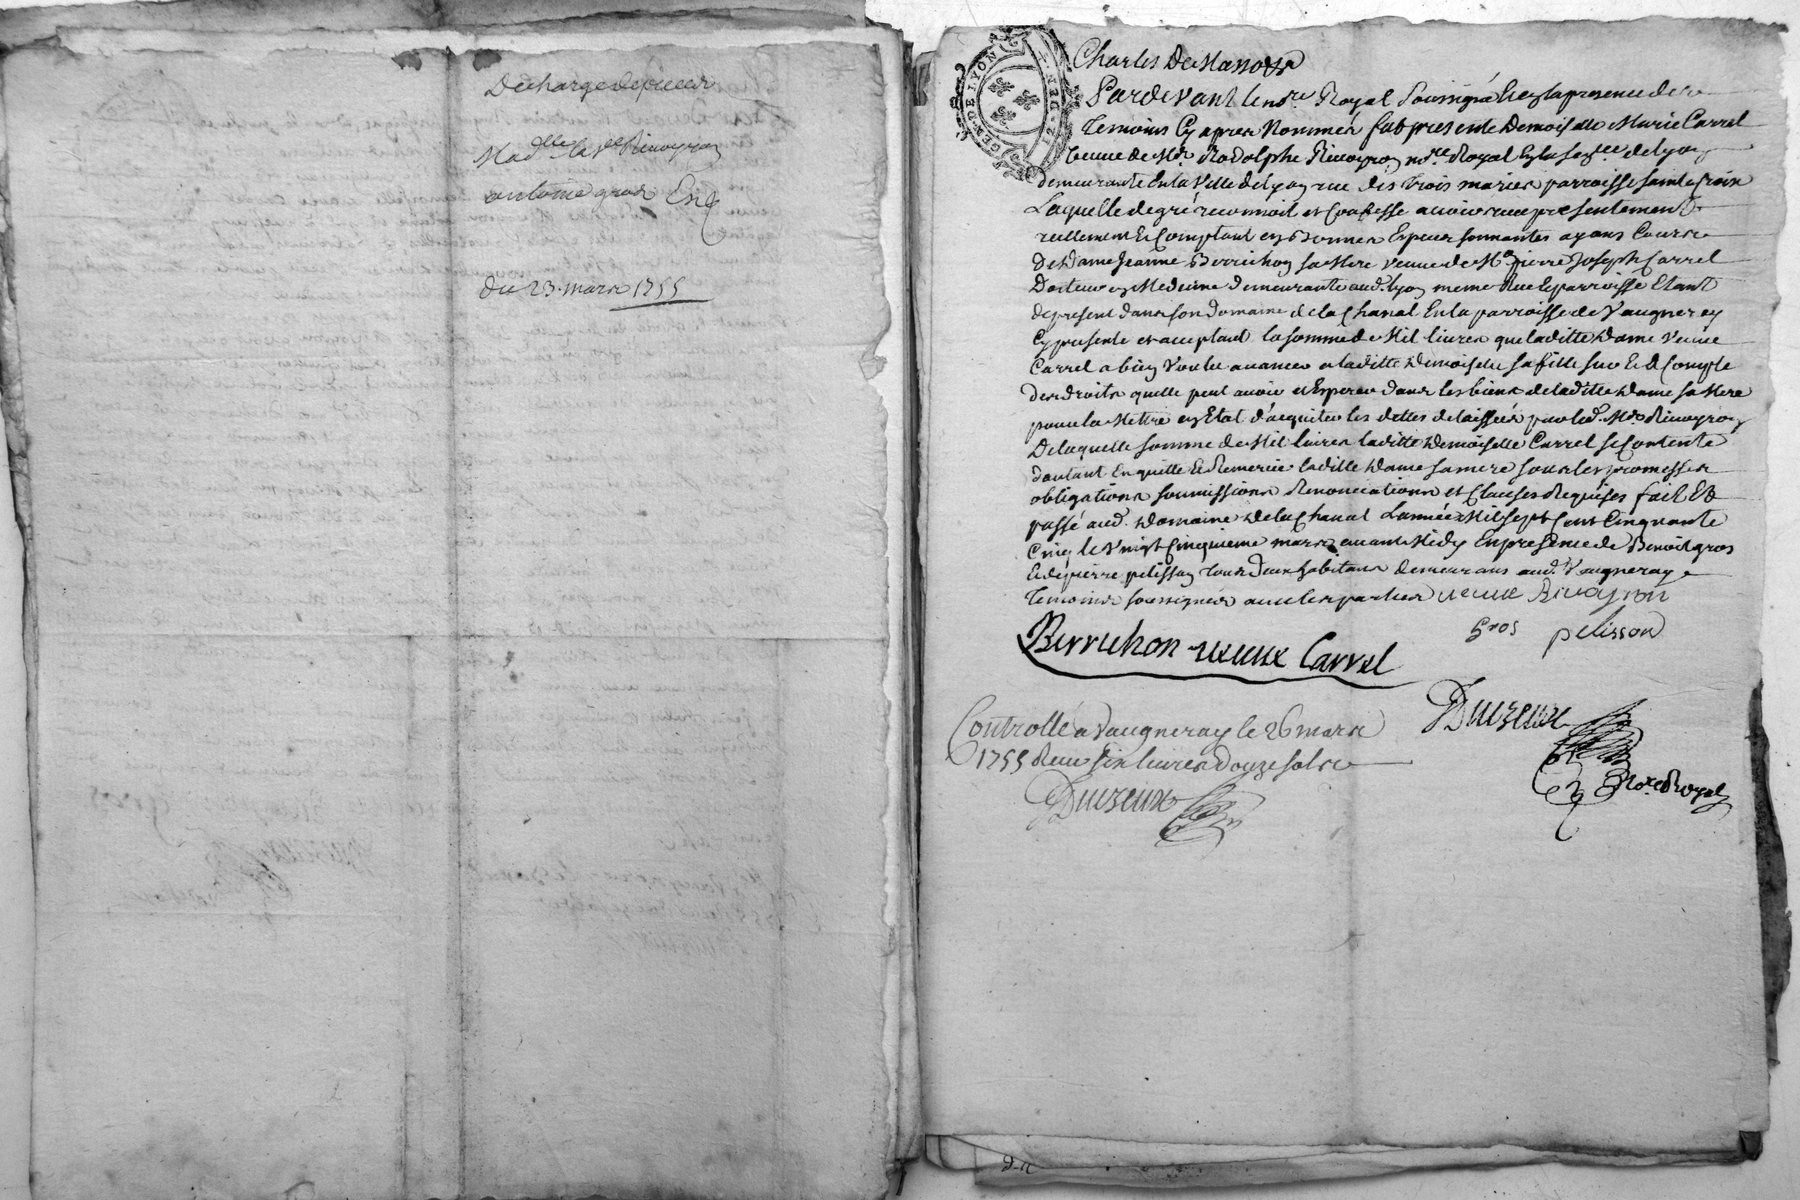 Decharge de pieces
Mad.lle la v.e Rivoyron
antoine gros
du 23. mars 1755
GEN. DE LYON
Charles De Masso
Pardevant le no.re Royal soussigné et en la presence des
temoins cy apres nommés fut presente Demoiselle Marie Carrel
veuve de M.r Rodolphe Rivoyron no.re Royal en la sen.ée de lyon
demeurante en la ville de lyon rue des trois maries parroisse sainte Croix
Laquelle de gré reconnoit et confesse avoir reçu presentement
reellement et comptant en bonnes especes sonnantes ayans cours
de Dame Jeanne Berruchon sa mere veuve de M.e pierre Joseph Carrel
Docteur en Medecine demeurante aud. lyon meme Rue et parroisse Etant
de present dans son Domaine de la Chanal en la parroisse de Vaugneray
cy presente et acceptant la somme de Mil livres que laditte Dame veuve
Carrel a bien voulu avancer a laditte Demoiselle sa fille sur et a Compte
des droits quelle peut avoir et Esperer dans les biens de laditte Dame sa Mere
pour la Mettre en Etat d'acquiter les dettes delaissées par led. M.e Rivoyron
De laquelle somme de Mil livres laditte Demoiselle Carrel se Contente
d'autant En quitte et Remercie laditte Dame sa mere sous les promesses
obligations soumissions Renonciations et Clauses Requises fait Et
passé aud. Domaine de la Chanal L'année Mil sept Cent Cinquante
Cinq le Vingt Cinquieme mars avant Midy En presence de Benoit gros
et de pierre pelisson tous deux habitans demeurans aud. Vaugneray
temoins soussignés avec les parties veuve Rivoyron
gros pelisson
Berruchon veuve Carrel
Duizeux
No.re Royal
Controllé a Vaugneray le 26 mars
1755 Reçu six livres douze sols
Duizeux